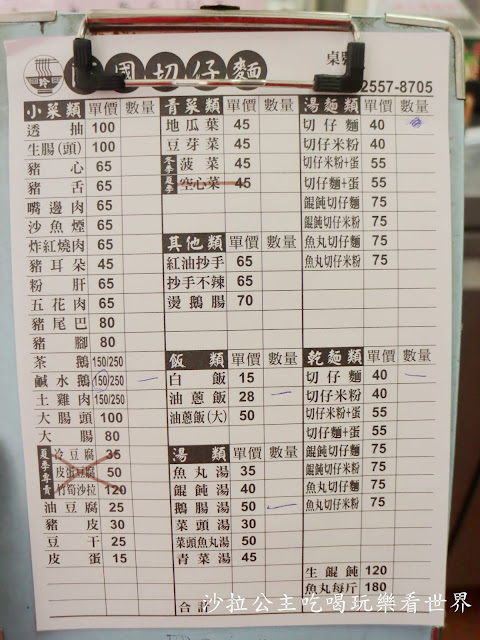 國切仔麵
桌號
2557-8705
小菜類 單價 數量
透抽 100
生腸(頭) 100
豬心 65
豬舌 65
嘴邊肉 65
沙魚煙 65
炸紅燒肉 65
豬耳朵 45
粉肝 65
五花肉 65
豬尾巴 80
豬腳 80
茶鵝 150/250
鹹水鵝 150/250
土雞肉 150/250
大腸頭 100
大腸 80
夏季專賣
冷豆腐 35
皮蛋豆腐 50
竹筍沙拉 120
油豆腐 25
豬皮 30
豆干 25
皮蛋 15
青菜類 單價 數量
地瓜葉 45
豆芽菜 45
冬季 菠菜 45
夏季 空心菜 45
其他類 單價 數量
紅油抄手 65
抄手不辣 65
燙鵝腸 70
飯類 單價 數量
白飯 15
油蔥飯 28
油蔥飯(大) 50
湯類 單價 數量
魚丸湯 35
餛飩湯 40
鵝腸湯 50
菜頭湯 30
菜頭魚丸湯 50
青菜湯 45
合計
湯麵類 單價 數量
切仔麵 40
切仔米粉 40
切仔米粉+蛋 55
切仔麵+蛋 55
餛飩切仔麵 75
餛飩切仔米粉 75
魚丸切仔麵 75
魚丸切仔米粉 75
乾麵類 單價 數量
切仔麵 40
切仔米粉 40
切仔米粉+蛋 55
切仔麵+蛋 55
餛飩切仔麵 75
餛飩切仔米粉 75
魚丸切仔麵 75
魚丸切仔米粉 75
生餛飩 120
魚丸每斤 180
沙拉公主吃喝玩樂看世界